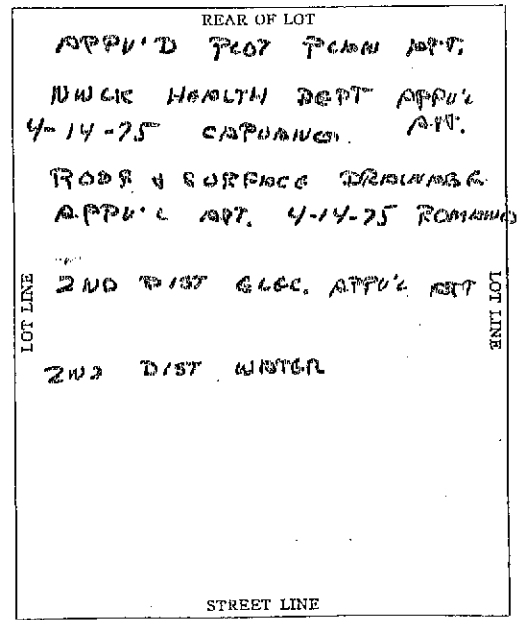 REAR OF LOT
APPV'D PLOT PLAN ATT.
NWLK HEALTH DEPT APPV'L
4-14-75 CAPUANO. ATT.
ROOF & SURFACE DRAINAGE
APPV'L ATT. 4-14-75 ROMANO
2ND DIST ELEC. APPV'L ATT
2ND DIST WATER
LOT LINE
LOT LINE
STREET LINE